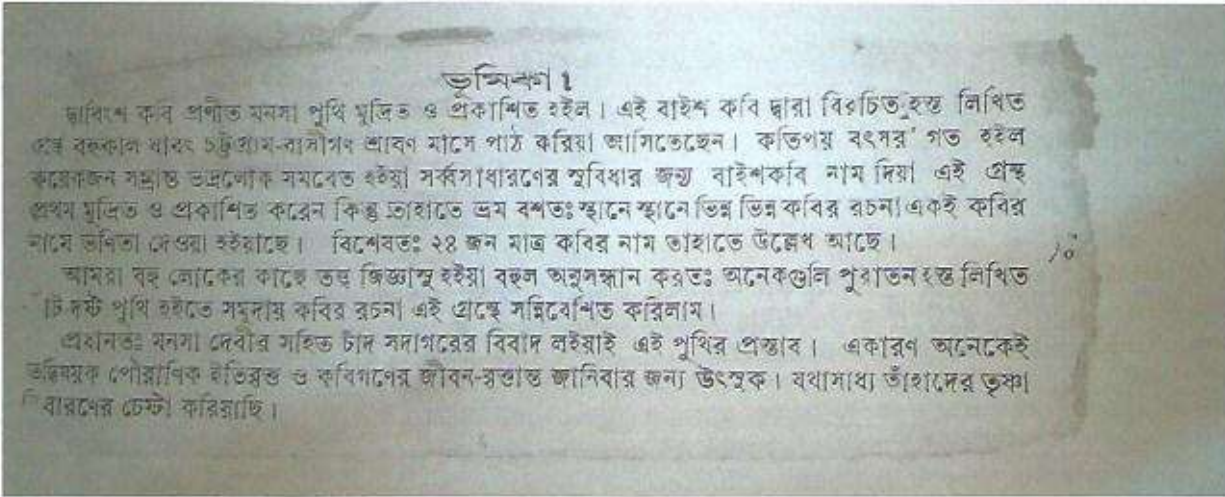 ভূমিকা।
দ্বাবিংশ কবি প্রণীত মনসা পুথি মুদ্রিত ও প্রকাশিত হইল। এই বাইশ কবি দ্বারা বিরচিত হস্ত লিখিত
গ্রন্থ বহুকাল যাবৎ চট্টগ্রাম-বাসীগণ শ্রাবণ মাসে পাঠ করিয়া আসিতেছেন। কতিপয় বৎসর গত হইল
কয়েকজন সম্ভ্রান্ত ভদ্রলোক সমবেত হইয়া সর্ব্বসাধারণের সুবিধার জন্য বাইশকবি নাম দিয়া এই গ্রন্থ
প্রথম মুদ্রিত ও প্রকাশিত করেন কিন্তু তাহাতে ভ্রম বশতঃ স্থানে স্থানে ভিন্ন ভিন্ন কবির রচনা একই কবির
নামে ভনিতা দেওয়া হইয়াছে। বিশেষতঃ ২৪ জন মাত্র কবির নাম তাহাতে উল্লেখ আছে।
আমরা বহু লোকের কাছে তত্ত্ব জিজ্ঞাসু হইয়া বহুল অনুসন্ধান করতঃ অনেকগুলি পুরাতন হস্ত লিখিত
পুথি হইতে সমুদায় কবির রচনা এই গ্রন্থে সন্নিবেশিত করিলাম।
প্রধানতঃ মনসা দেবীর সহিত চাঁদ সদাগরের বিবাদ লইয়াই এই পুথির প্রস্তাব। একারণ অনেকেই
তদ্বিষয়ক পৌরাণিক ইতিবৃত্ত ও কবিগণের জীবন-বৃত্তান্ত জানিবার জন্য উৎসুক। যথাসাধ্য তাঁহাদের তৃষ্ণা
নিবারণের চেষ্টা করিয়াছি।